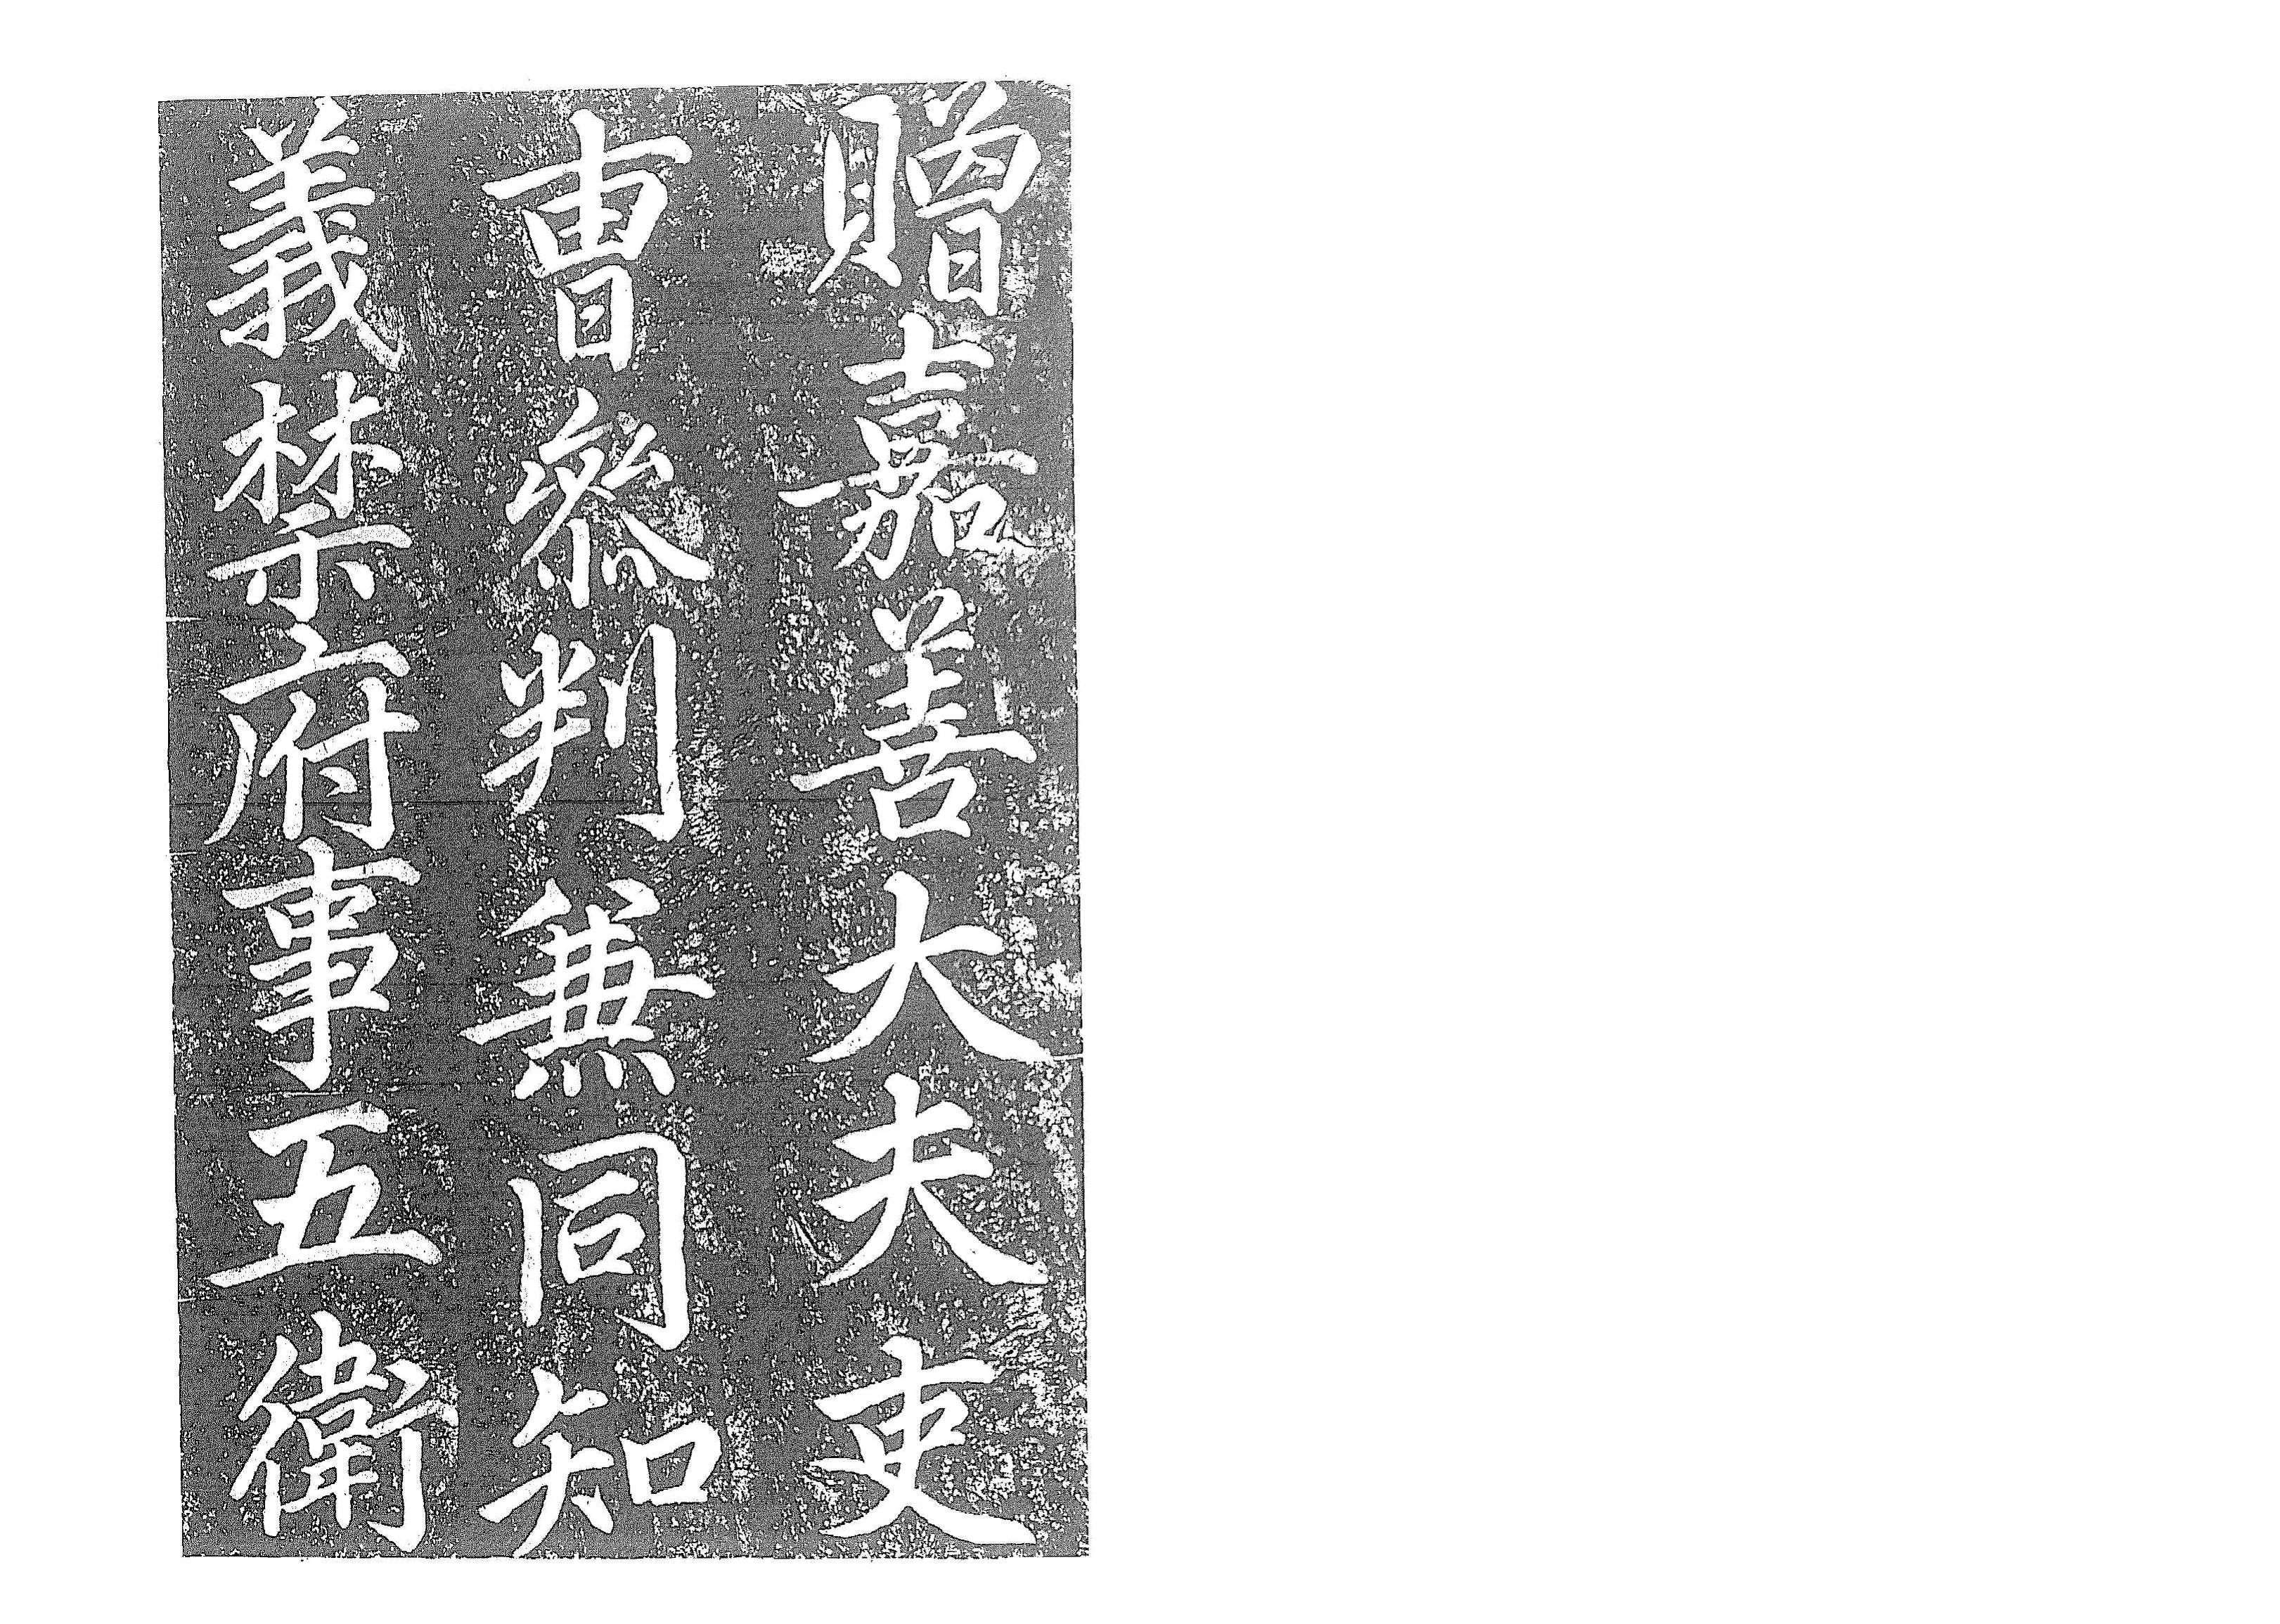 贈嘉善大夫吏
曹參判兼同知
義禁府事五衛